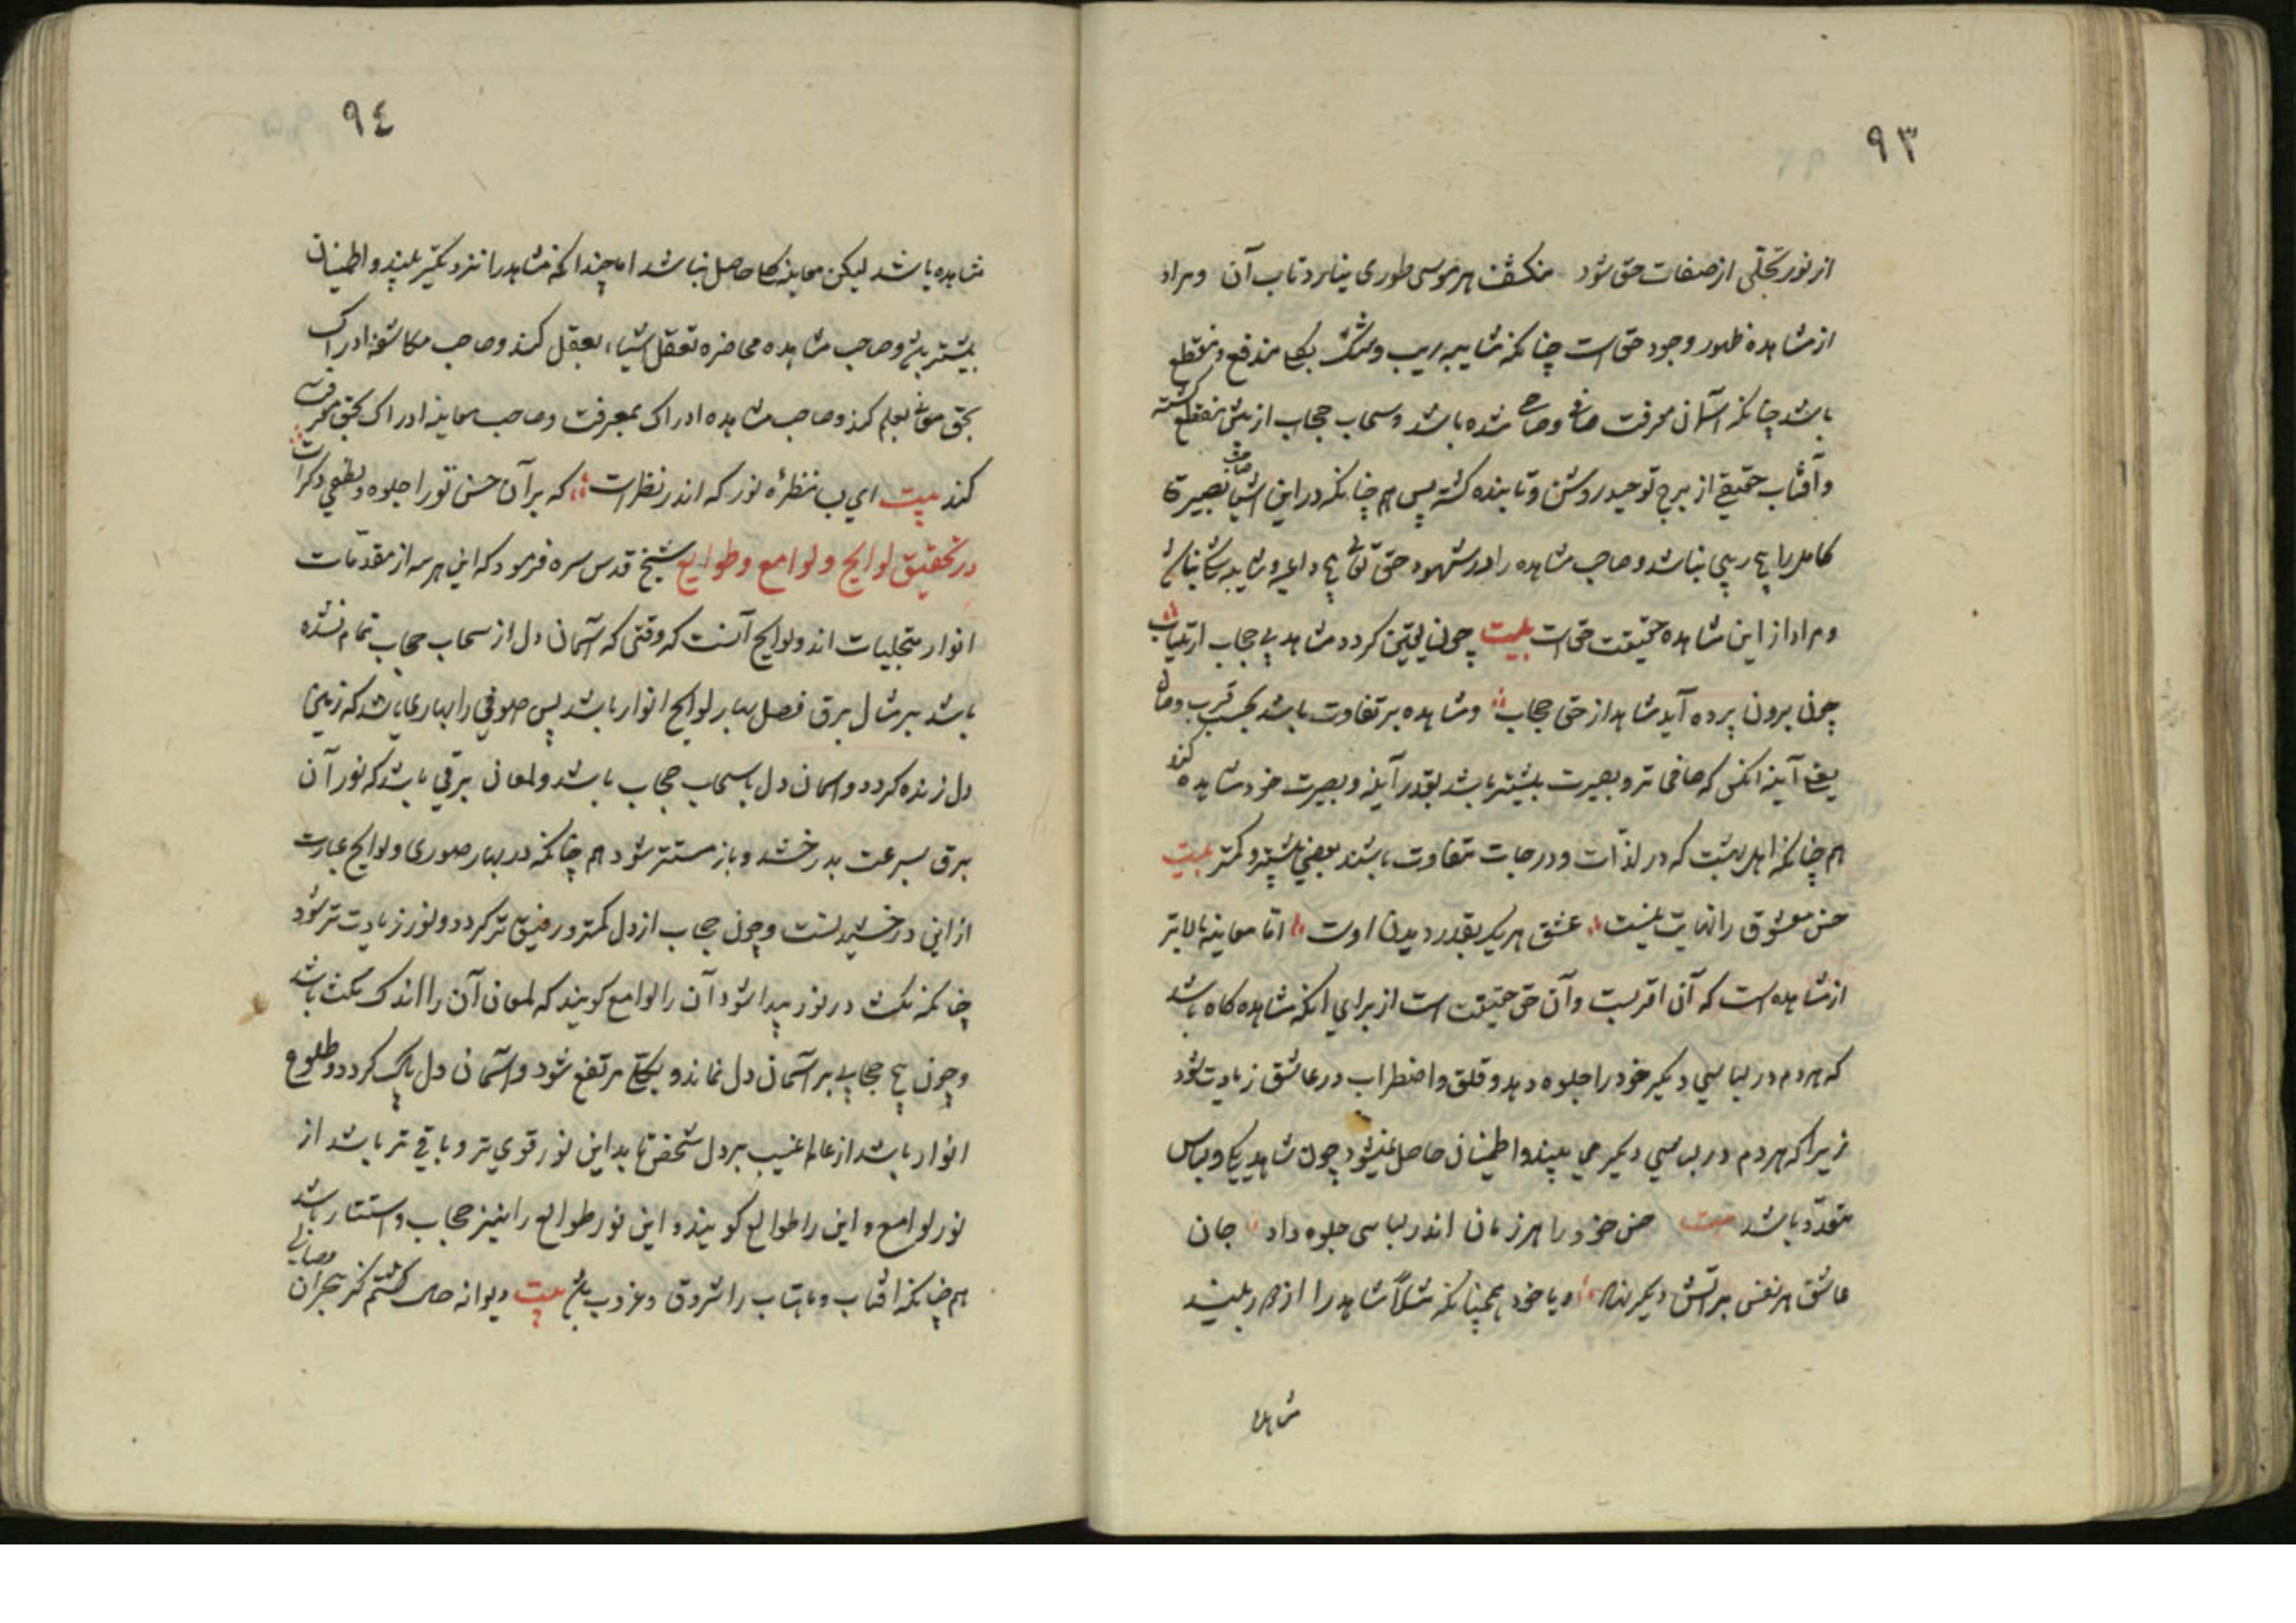 ٩٣
از نور تجلی از صفات حق شود منکشف هر موسی طوری نیارد تاب آن ومراد
از مشاهده ظهور وجود حق است چنانکه شایبه ریب وشک بکلی مندفع ومنقطع
باشد چنانکه آسمان معرفت صافی وصاحی شده باشد وسحاب حجاب از پیش منقطع کشته
وآفتاب حقیقی از برج توحید روشن وتابنده کشته پس هم چنانکه در این اشیا صاحب بصیرة
کامل را هیچ ریبی نباشد وصاحب مشاهده را در شهود حق تعالی هیچ داعیه وشایبه شک نباشد
ومراد از این مشاهده حقیقت حق است بیت چون یقین کردد مشاهد بی حجاب ارتیاب
چون برون پرده آید شاهد از حق حجاب ومشاهده بر تفاوت باشد بحسب قرب وصفای
یعنی آینه آنکس که صافی تر وبصیرت بیشتر باشد بقدر آینه وبصیرت خود مشاهده کند
هم چنانکه اهل بهشت که در لذّات ودرجات متفاوت باشند بعضی بیشتر وکمتر بیت
حسن معشوق را نهایت نیست عشق هر یک بقدر دیدن اوست امّا معاینه بالاتر
از مشاهده است که آن اقربست وآن حق حقیقت است از برای آنکه مشاهده کاه باشد
که هر دم در لباسی دیکر خود را جلوه دهد وقلق واضطراب در عاشق زیادت شود
زیرا که هر دم در لباسی دیکر می بیند واطمینان حاصل نمیشود چون شاهد یکی ولباس
متعدّد باشد بیت حسن خود را هر زمان اندر لباسی جلوه داد جان
عاشق هر نفس بر آتش دیکر نهاد ویا خود همچنانکه مثلاً شاهد را از دور بیند
مشاهده
٩٤
مشاهده باشد لیکن معاینه کما حاصل نباشد اما چندانکه شاهد را نزدیکتر بیند واطمینان
بیشتر باشد وصاحب مشاهده محاضره تعقل اشیاء بعقل کند وصاحب مکاشفه ادراک
بحق معانی بعلم کند وصاحب مشاهده ادراک بمعرفت وصاحب معاینه ادراک بحق معرفت
کند بیت ای ب منظره نور که اندر نظر است که بر آن حسن تو را جلوه ولطفی دکر است
در تحقیق لوایح ولوامع وطوالع شیخ قدس سره فرمود که این هر سه از مقدّمات
انوار تجلیات اند ولوایح آنست که وقتی که آسمان دل از سحاب حجاب تمام نشده
باشد بر مثال برق فصل بهار لوایح انوار باشد پس صوفی را بهاری باشد که زمین
دل زنده کردد وآسمان دل با سحاب حجاب باشد ولمعان برقی باشد که نور آن
برق بسرعت بدرخشد وباز مستتر شود هم چنانکه در بهار صوری ولوایح عبارت
از این درخشیدنست وچون حجاب از دل کمتر ورقیق تر کردد ونور زیادت تر شود
چنانکه مکث در نور پیدا شود آن را لوامع کویند که لمعان آن را اندک مکث باشد
وچون هیچ حجابی بر آسمان دل نماند وبکلی مرتفع شود وآسمان دل پاک کردد وطلوع
انوار باشد از عالم غیب بر دل شخص تابد این نور قوی تر وباقی تر باشد از
نور لوامع واین را طوالع کویند واین نور طوالع را نیز حجاب واستتار باشد
هم چنانکه آفتاب وماهتاب را شروق وغروب باشد بیت دیوانه کشتم کز هجران